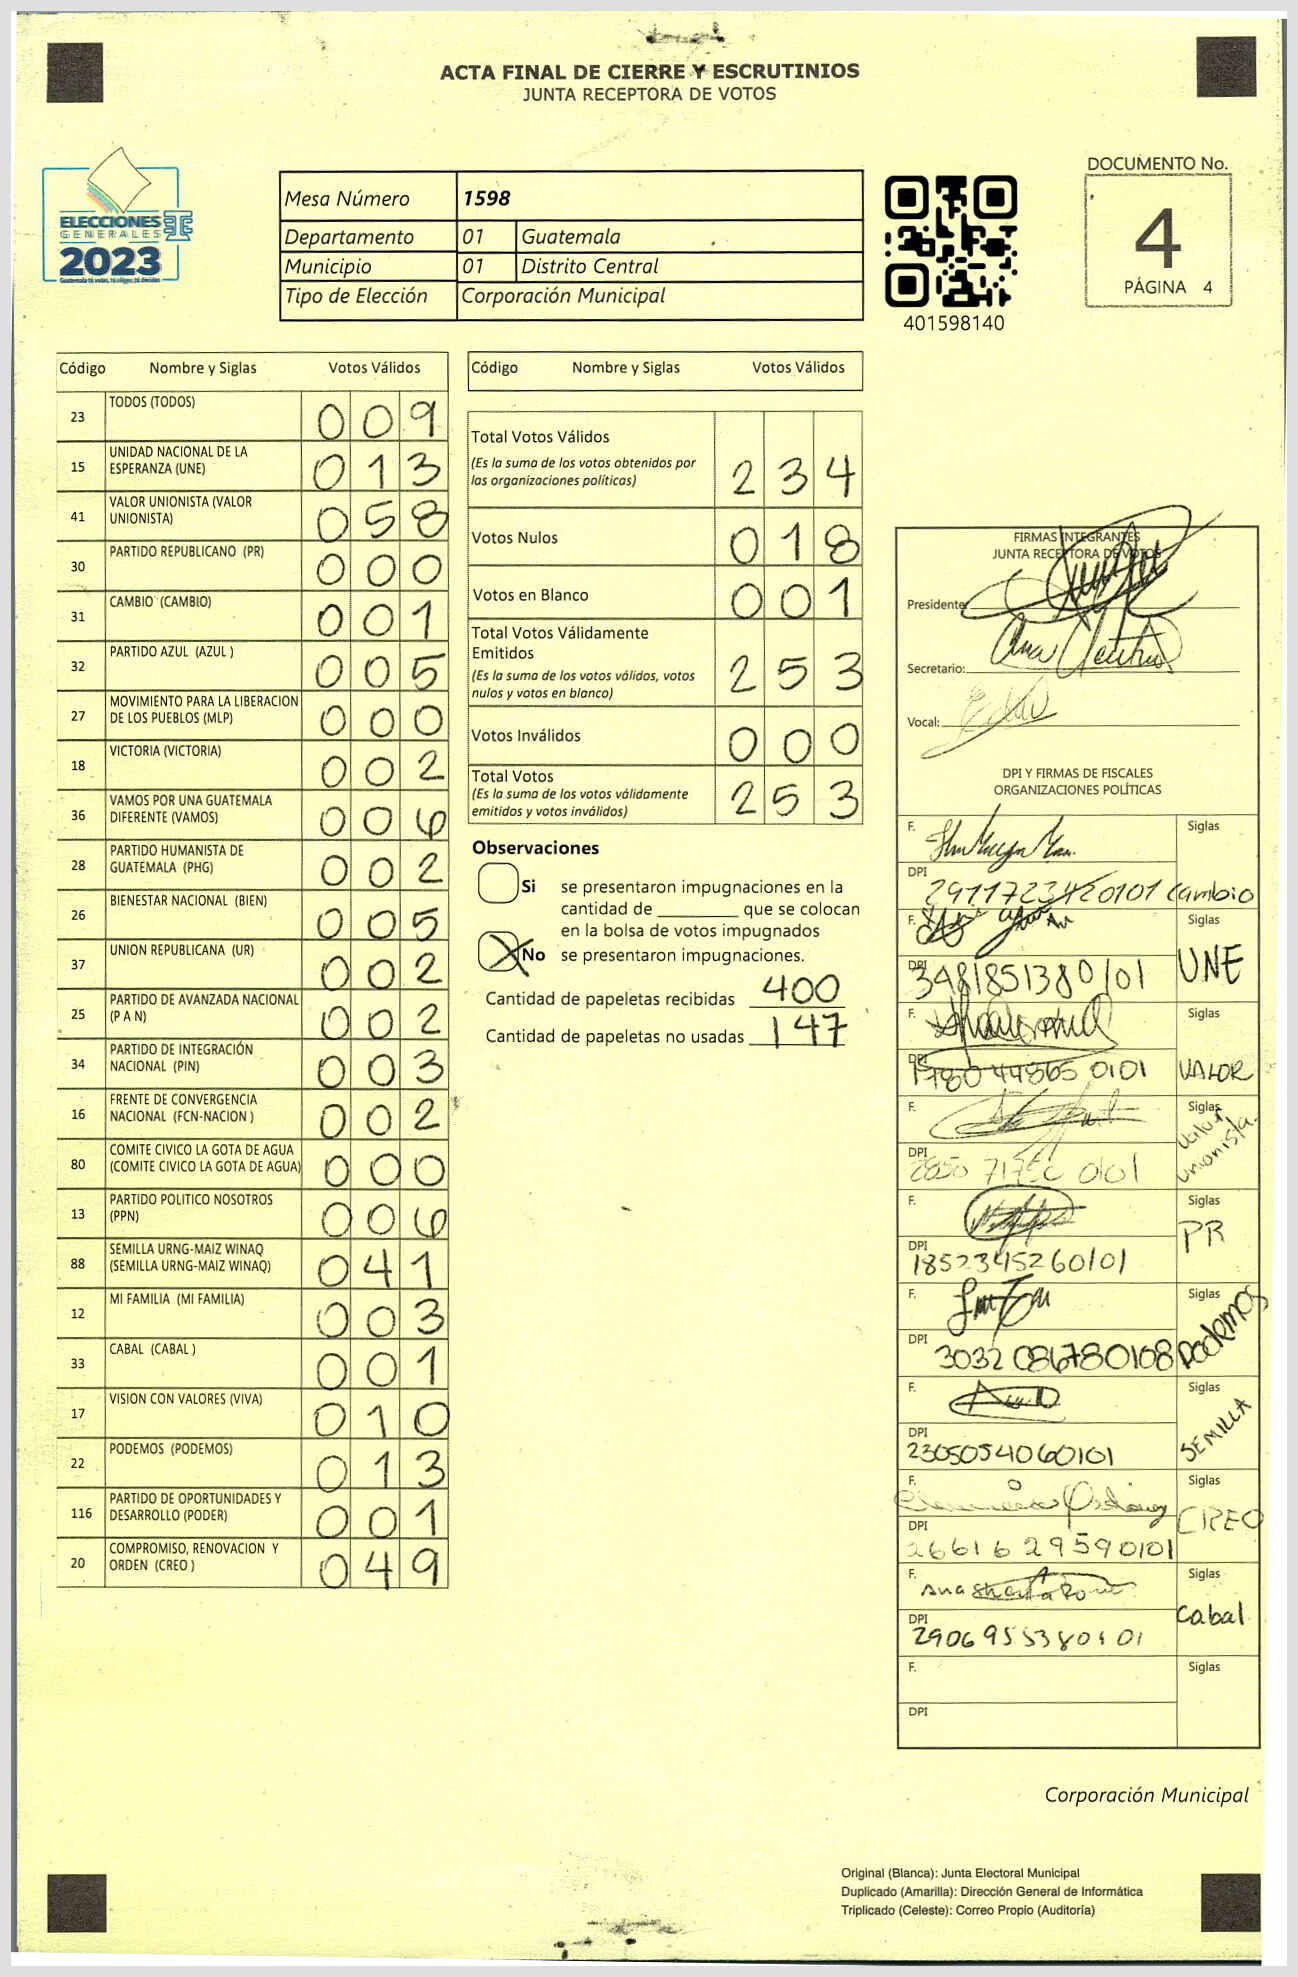 ACTA FINAL DE CIERRE Y ESCRUTINIOS
JUNTA RECEPTORA DE VOTOS
ELECCIONES
GENERALES
2023
Mesa Número 1598
Departamento 01 Guatemala
Municipio 01 Distrito Central
Tipo de Elección Corporación Municipal
401598140
DOCUMENTO No.
4
PÁGINA 4
Código Nombre y Siglas Votos Válidos
23 TODOS (TODOS) 009
15 UNIDAD NACIONAL DE LA ESPERANZA (UNE) 013
41 VALOR UNIONISTA (VALOR UNIONISTA) 058
30 PARTIDO REPUBLICANO (PR) 000
31 CAMBIO (CAMBIO) 001
32 PARTIDO AZUL (AZUL ) 005
27 MOVIMIENTO PARA LA LIBERACION DE LOS PUEBLOS (MLP) 000
18 VICTORIA (VICTORIA) 002
36 VAMOS POR UNA GUATEMALA DIFERENTE (VAMOS) 006
28 PARTIDO HUMANISTA DE GUATEMALA (PHG) 002
26 BIENESTAR NACIONAL (BIEN) 005
37 UNION REPUBLICANA (UR) 002
25 PARTIDO DE AVANZADA NACIONAL (P A N) 002
34 PARTIDO DE INTEGRACIÓN NACIONAL (PIN) 003
16 FRENTE DE CONVERGENCIA NACIONAL (FCN-NACION ) 002
80 COMITE CIVICO LA GOTA DE AGUA (COMITE CIVICO LA GOTA DE AGUA) 000
13 PARTIDO POLITICO NOSOTROS (PPN) 006
88 SEMILLA URNG-MAIZ WINAQ (SEMILLA URNG-MAIZ WINAQ) 041
12 MI FAMILIA (MI FAMILIA) 003
33 CABAL (CABAL ) 001
17 VISION CON VALORES (VIVA) 010
22 PODEMOS (PODEMOS) 013
116 PARTIDO DE OPORTUNIDADES Y DESARROLLO (PODER) 001
20 COMPROMISO, RENOVACION Y ORDEN (CREO ) 049
Código Nombre y Siglas Votos Válidos
Total Votos Válidos 234
(Es la suma de los votos obtenidos por
las organizaciones políticas)
Votos Nulos 018
Votos en Blanco 001
Total Votos Válidamente
Emitidos 253
(Es la suma de los votos válidos, votos
nulos y votos en blanco)
Votos Inválidos 000
Total Votos 253
(Es la suma de los votos válidamente
emitidos y votos inválidos)
Observaciones
Si se presentaron impugnaciones en la
cantidad de ________ que se colocan
en la bolsa de votos impugnados
No se presentaron impugnaciones.
Cantidad de papeletas recibidas 400
Cantidad de papeletas no usadas 147
FIRMAS INTEGRANTES
JUNTA RECEPTORA DE VOTOS
Presidente:
Secretario:
Vocal:
DPI Y FIRMAS DE FISCALES
ORGANIZACIONES POLÍTICAS
F. Siglas
DPI 2911723420101 Cambio
F. Siglas
DPI 3481851380101 UNE
F. Siglas
DPI VALOR
F. Siglas
DPI Valor Unionista
F. Siglas
DPI 1852345260101 PR
F. Siglas
DPI 3032086780108 Podemos
F. Siglas
DPI 2305054060101 SEMILLA
F. Siglas
DPI 2661629590101 CREO
F. Siglas
DPI 2906955380101 Cabal
F. Siglas
DPI
Corporación Municipal
Original (Blanca): Junta Electoral Municipal
Duplicado (Amarilla): Dirección General de Informática
Triplicado (Celeste): Correo Propio (Auditoría)